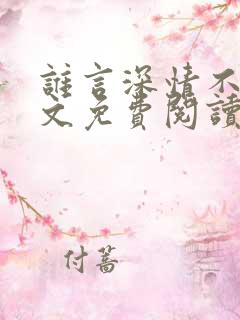 誰言深情不
文免費閱讀
付蓄